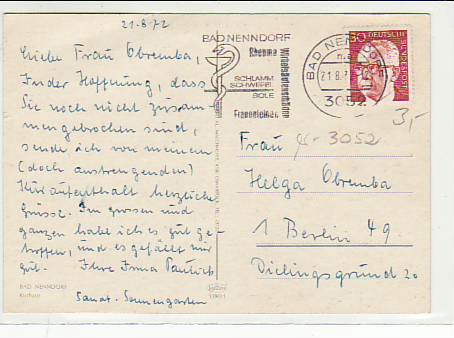 21.8.72
Liebe Frau Obremba!
In der Hoffnung, dass
Sie noch nicht zusam-
mengebrochen sind,
sende ich von meinem
(doch anstrengenden)
Kuraufenthalt herzliche
Grüsse. Im grossen und
ganzen habe ich es gut ge-
troffen, und es gefällt mir
gut. Ihre Irma
Sanat. Sonnengarten
BAD NENNDORF
Kurhaus
BAD NENNDORF
Rheuma
SCHLAMM
SCHWEFEL
SOLE
Frauenleiden
BAD NENNDORF
21.8.7
3052
30
DEUTSCHE
BUNDESPOST
3,-
3052
Frau
Helga Obremba
1 Berlin 49
Dielingsgrund 20